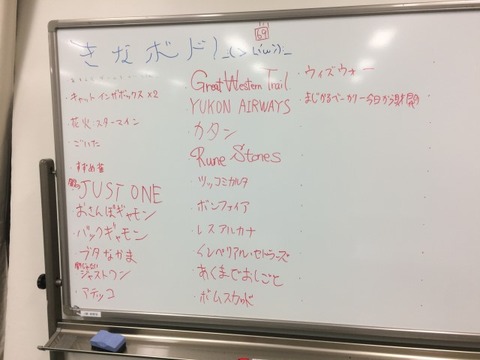 69
きなボド！
・キャット インザボックス×2
・花火 スターマイン
・ごいた
・すずめ雀
・JUST ONE
・おさんぽギャモン
・バックギャモン
・ブタなかま
・ジャストワン
・アテッコ
・Great Western Trail
・YUKON AIRWAYS
・カタン
・Rune Stones
・ツッコミカルタ
・ボンファイア
・レス アルカナ
・インペリアル・セトラーズ
・あくまでおしごと
・ボムスカッド
・ウィズ ウォー
・まじかるベーカリー今日から財閥